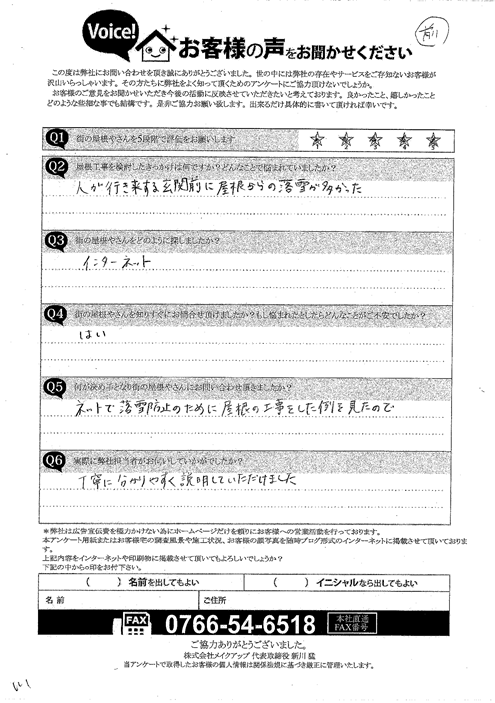 Voice!
お客様の声をお聞かせください
この度は弊社にお問い合わせを頂き誠にありがとうございました。世の中には弊社の存在やサービスをご存知ないお客様が
沢山いらっしゃいます。その方たちに弊社をよく知って頂くためのアンケートにご協力頂けないでしょうか。
お客様のご意見をお聞かせいただき今後の活動に反映させていただきたいと考えております。良かったこと、嬉しかったこと
どのような些細な事でも結構です。是非ご協力お願い致します。出来るだけ具体的に書いて頂ければ幸いです。
Q1 街の屋根やさんを5段階で評価をお願いします
Q2 屋根工事を検討したきっかけは何ですか？どんなことで悩まれていましたか？
人が行き来する玄関前に屋根からの落雪が多かった
Q3 街の屋根やさんをどのように探しましたか？
インターネット
Q4 街の屋根やさんを知りすぐにお問合せ頂けましたか？もし悩まれたとしたらどんなことがご不安でしたか？
はい
Q5 何が決め手となり街の屋根やさんにお問い合わせ頂きましたか？
ネットで落雪防止のために屋根の工事をした例を見たので
Q6 実際に弊社担当者がお伺いしていかがでしたか？
丁寧に分かりやすく説明していただけました
＊弊社は広告宣伝費を極力かけない為にホームページだけを頼りにお客様への営業活動を行っております。
本アンケート用紙またはお客様宅の調査風景や施工状況、お客様の顔写真を随時ブログ形式のインターネットに掲載させて頂いておりま
す。
上記内容をインターネットや印刷物に掲載させて頂いてもよろしいでしょうか？
下記の中から○印をお付下さい。
（　　）名前を出してもよい　（　　）イニシャルなら出してもよい
名前　ご住所
FAX 0766-54-6518 本社直通 FAX番号
ご協力ありがとうございました。
株式会社メイクアップ 代表取締役 新川 猛
当アンケートで取得したお客様の個人情報は関係法規に基づき厳正に管理いたします。